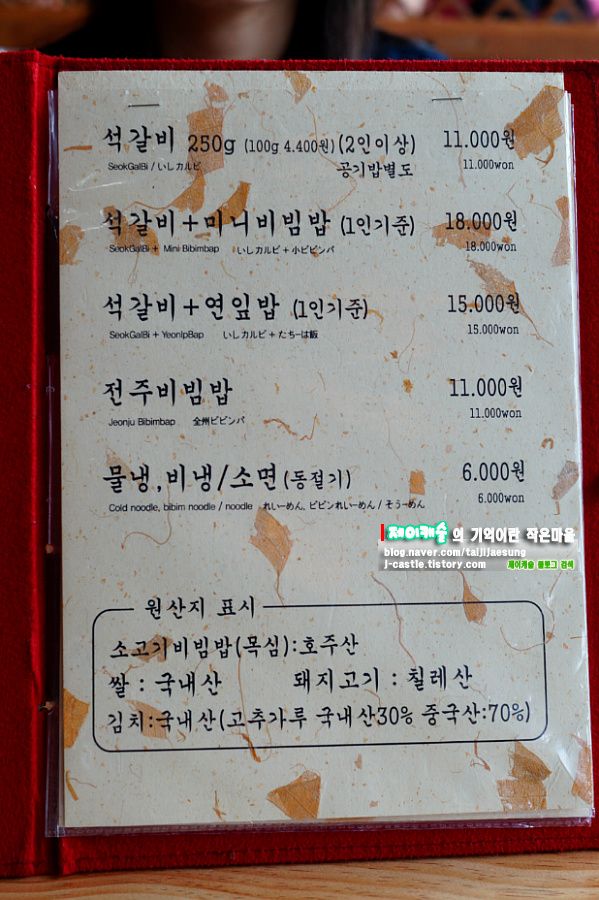 석갈비 250g (100g 4.400원)(2인이상) 11.000원
SeokGalBi / いしカルビ 공기밥별도 11.000won
석갈비+미니비빔밥 (1인기준) 18.000원
SeokGalBi + Mini Bibimbap いしカルビ + 小ビビンバ 18.000won
석갈비+연잎밥 (1인기준) 15.000원
SeokGalBi + YeonIpBap いしカルビ + たちーは飯 15.000won
전주비빔밥 11.000원
Jeonju Bibimbap 全州ビビンバ 11.000won
물냉,비냉/소면(동절기) 6.000원
Cold noodle, bibim noodle / noodle れいーめん, ビビンれいーめん / そうーめん 6.000won
제이캐슬의 기억이란 작은마을
blog.naver.com/taijijaesung
j-castle.tistory.com 제이캐슬 블로그 검색
원산지 표시
소고기비빔밥(목심):호주산
쌀 : 국내산 돼지고기 : 칠레산
김치:국내산(고추가루 국내산30% 중국산:70%)